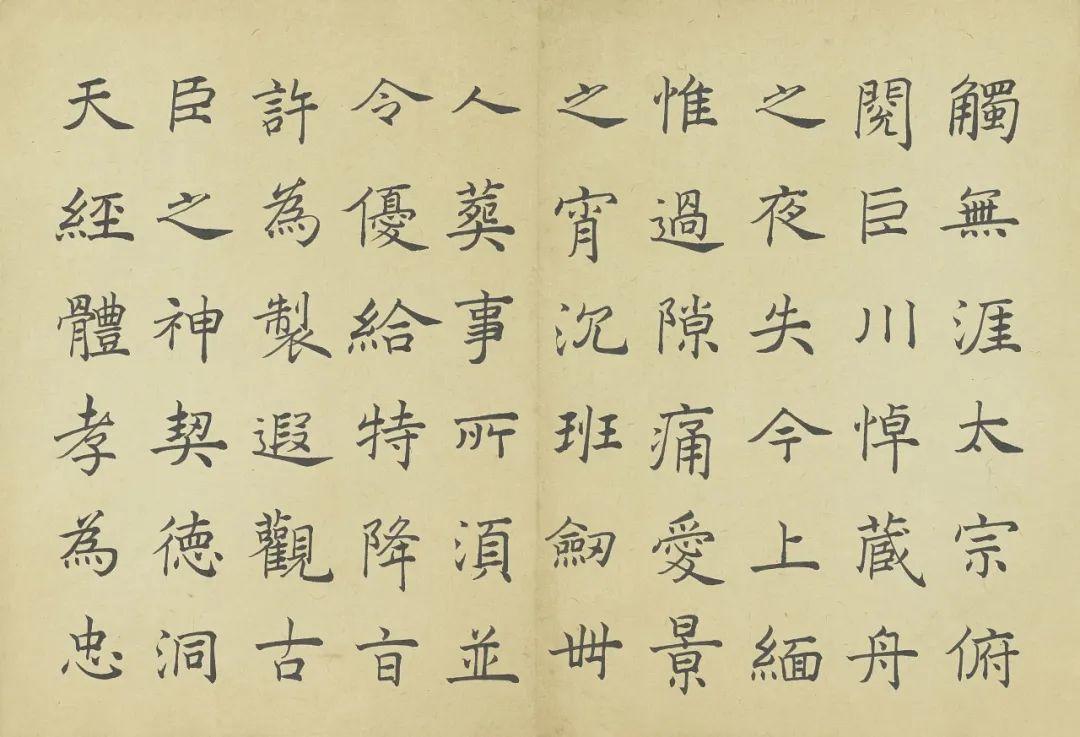 觸無涯太宗俯
閱臣川悼蔵舟
之夜失今上緬
惟過隙痛愛景
之宵沉班劔卌
人葬事所湏並
令優給特降㫖
許為製遐觀古
臣之神契徳洞
天經體孝為忠